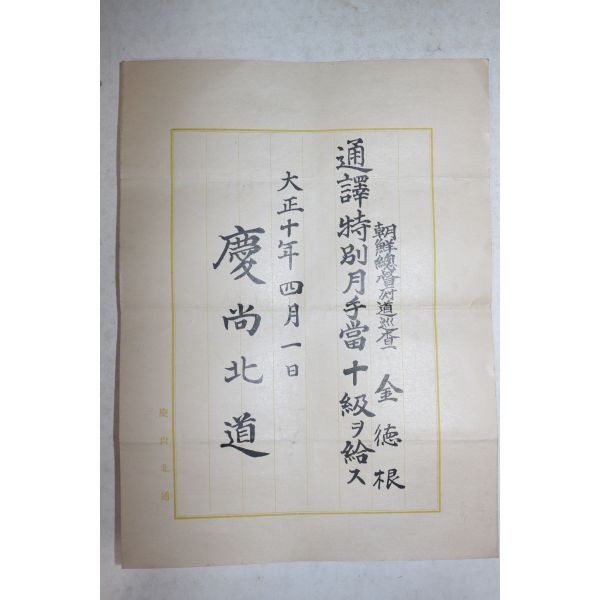 朝鮮總督府道巡査 金德根
通譯特別月手當十級ヲ給ス
大正十年四月一日
慶尚北道
慶尚北道